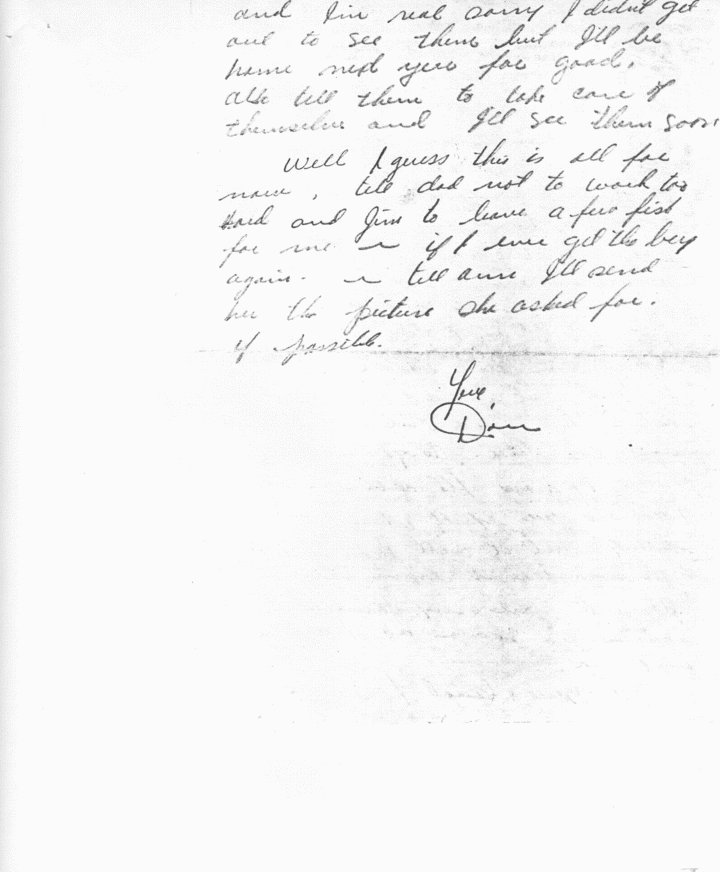 and I'm real sorry I didn't get
out to see them but I'll be
home next year for good.
Also tell them to take care of
themselves and I'll see them soon
Well I guess this is all for
now, tell dad not to work too
hard and Jim to leave a few fish
for me if I ever get the
again. tell I'll send
her the picture she asked for.
if possible.